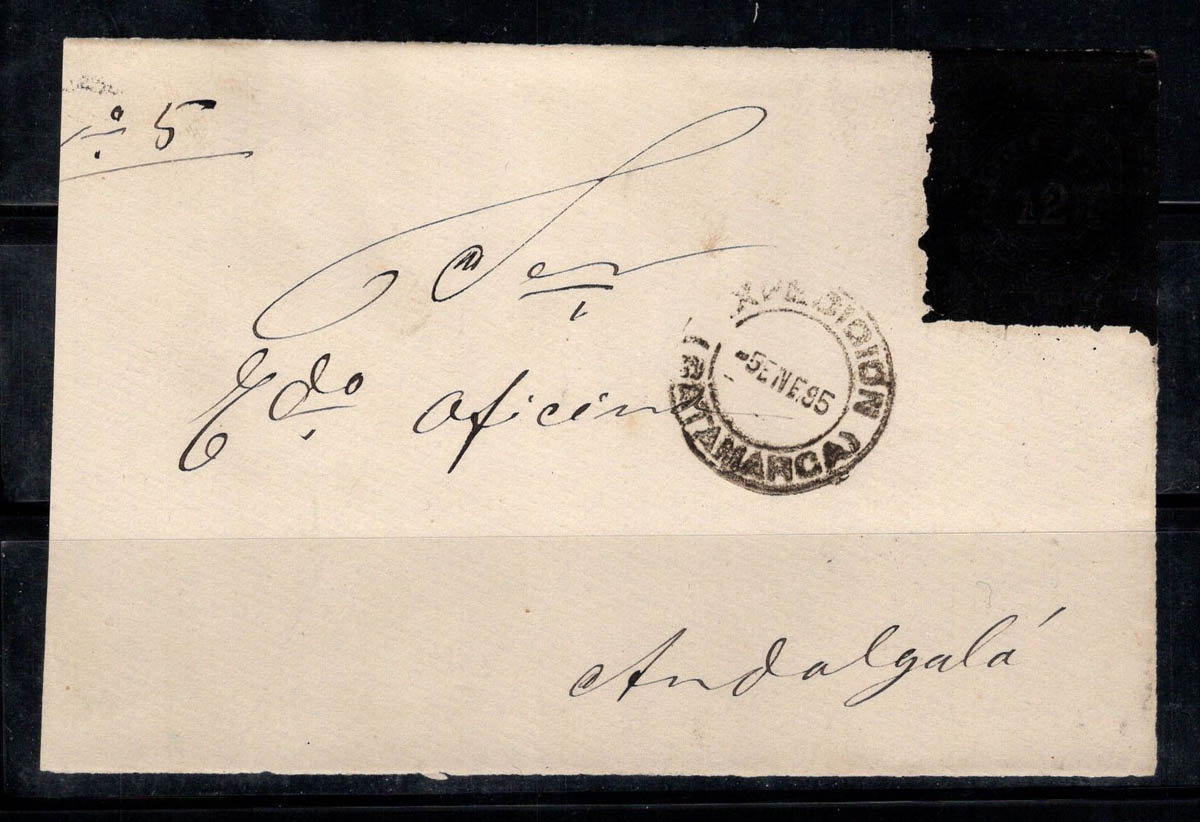 nº 5
12
Señ
Edo oficina
XPEDICION
- 5 ENE.95
(CATAMARCA)
Andalgalá